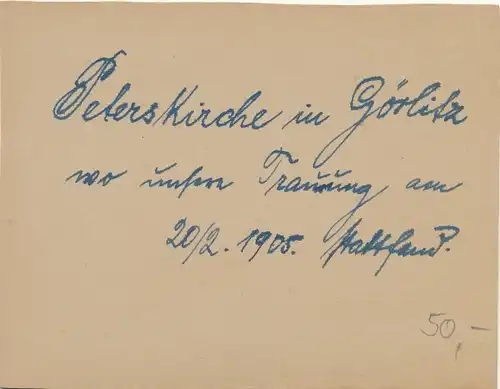 Peterskirche in Görlitz
wo unsere Trauung am
20/2. 1905. stattfand.
50,-